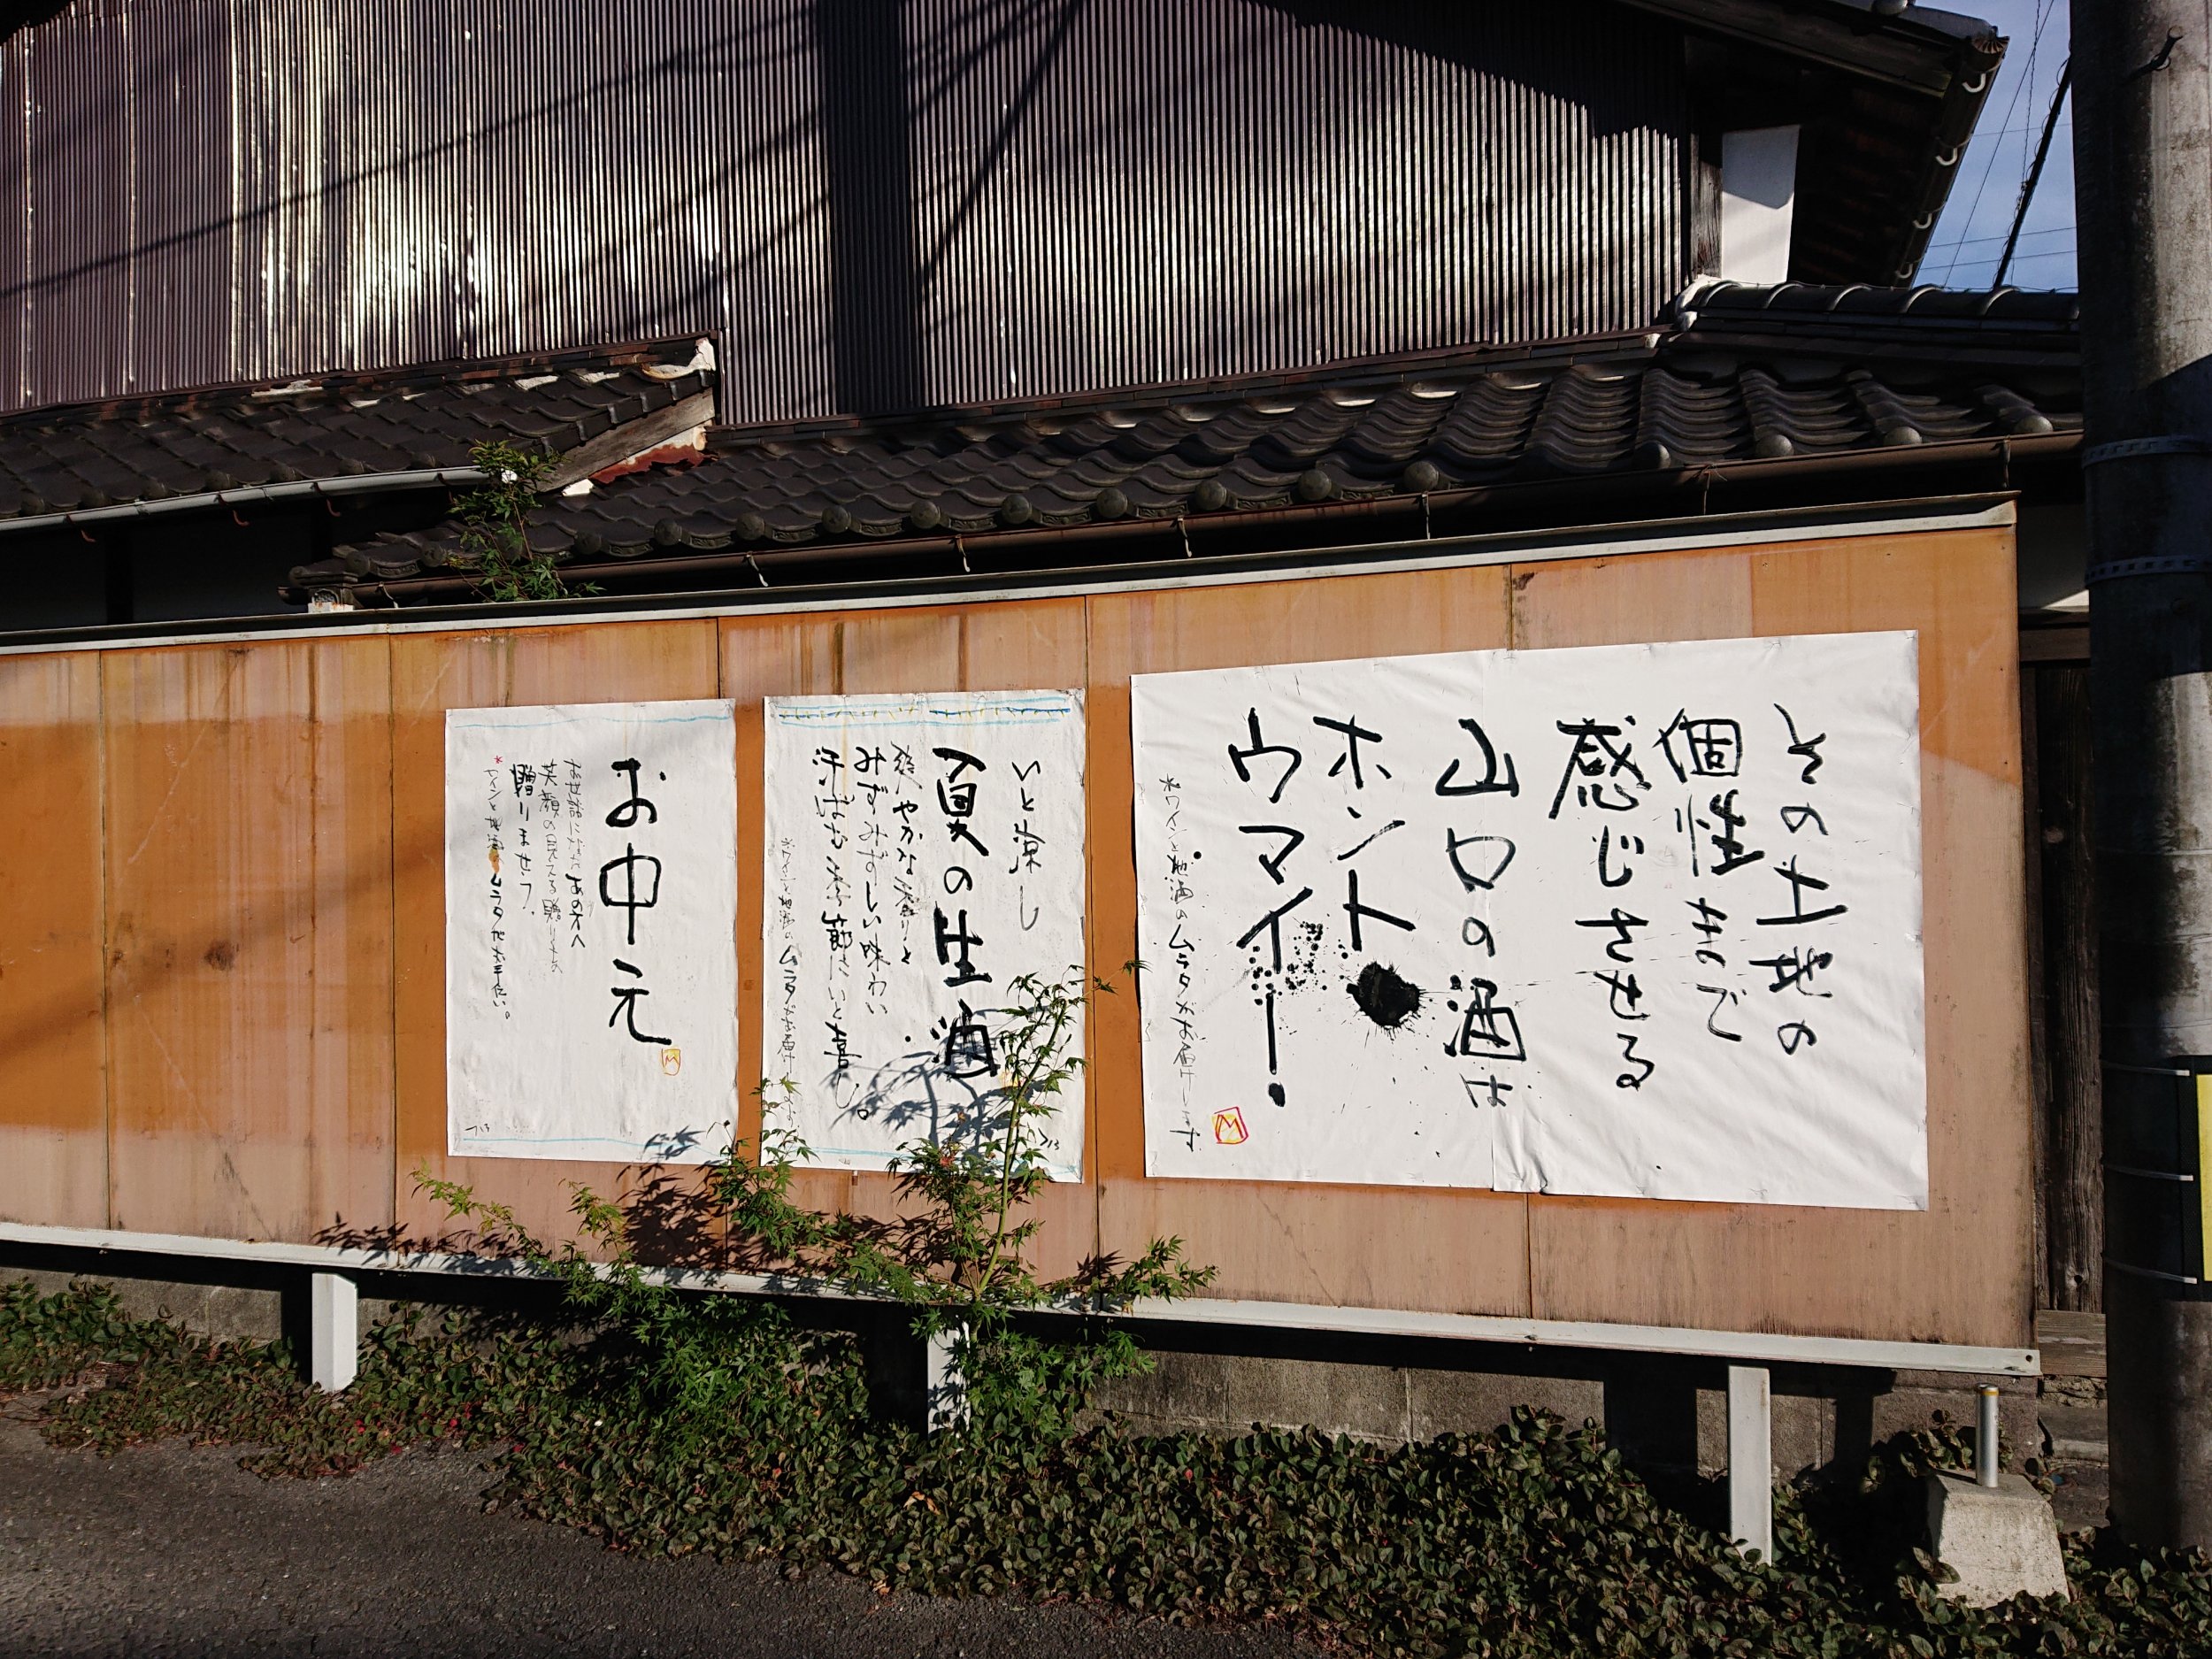 その土地の
個性まで
感じさせる
山口の酒は
ホント
ウマイ!
※ワインと地酒のムラタがお届けします
M
いと涼し
夏の生酒
やかな香りと
みずみずしい味わい
季節
ムラタがお届け
7/13
お中元
お世話になったあの方へ
笑顔の見える贈りもの
贈りませう。
*ワインと地酒のムラタがお手伝い。
M
7/13